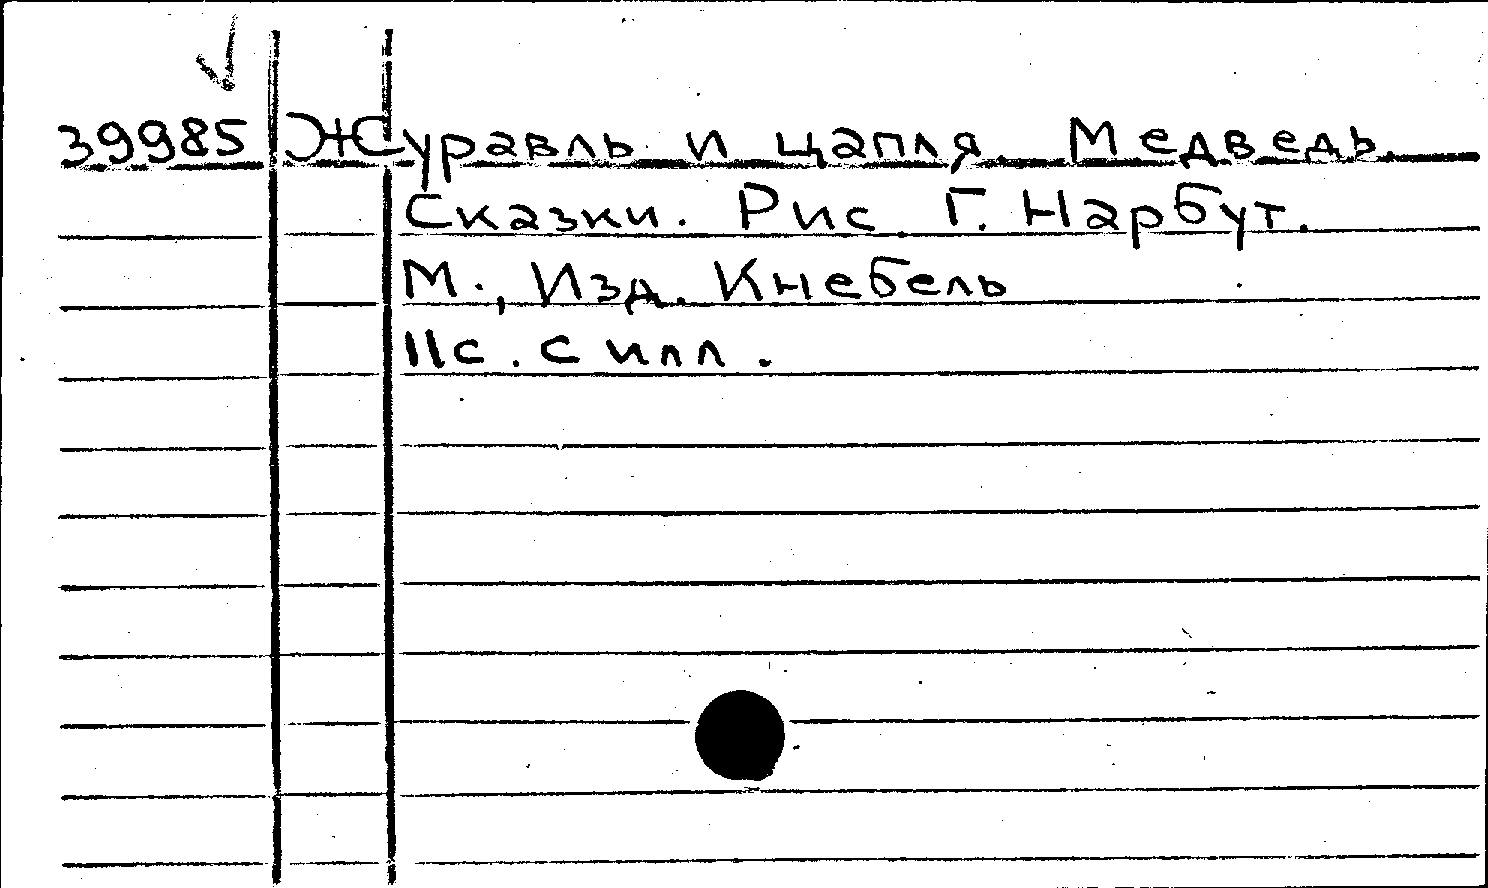 39985 Журавль и цапля. Медведь.
Сказки. Рис. Г. Нарбут.
М., Изд. Кнебель
11с. с илл.